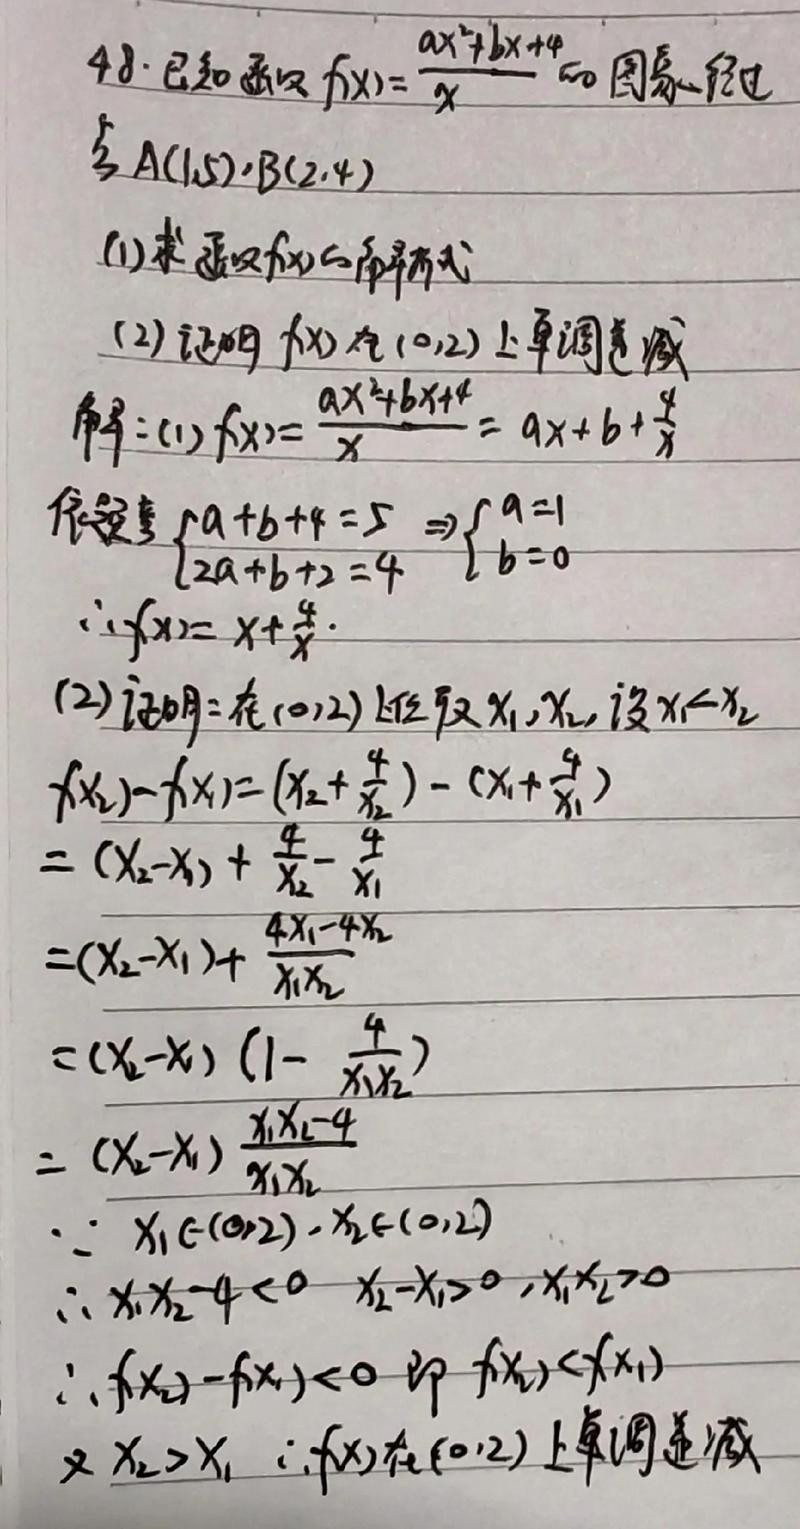 48.已知函数f(x)=(ax²+bx+4)/x的图象经过
点A(1,5),B(2,4)
(1)求函数f(x)的解析式
(2)证明f(x)在(0,2)上单调递减
解:(1)f(x)=(ax²+bx+4)/x=ax+b+4/x
依题意{a+b+4=5 2a+b+2=4⇒{a=1 b=0
∴f(x)=x+4/x.
(2)证明:在(0,2)上任取x₁,x₂,设x₁<x₂
f(x₂)-f(x₁)=(x₂+4/x₂)-(x₁+4/x₁)
=(x₂-x₁)+4/x₂-4/x₁
=(x₂-x₁)+(4x₁-4x₂)/(x₁x₂)
=(x₂-x₁)(1-4/(x₁x₂))
=(x₂-x₁)(x₁x₂-4)/(x₁x₂)
∵x₁∈(0,2),x₂∈(0,2)
∴x₁x₂-4<0 x₂-x₁>0,x₁x₂>0
∴f(x₂)-f(x₁)<0即f(x₂)<f(x₁)
又x₂>x₁∴f(x)在(0,2)上单调递减